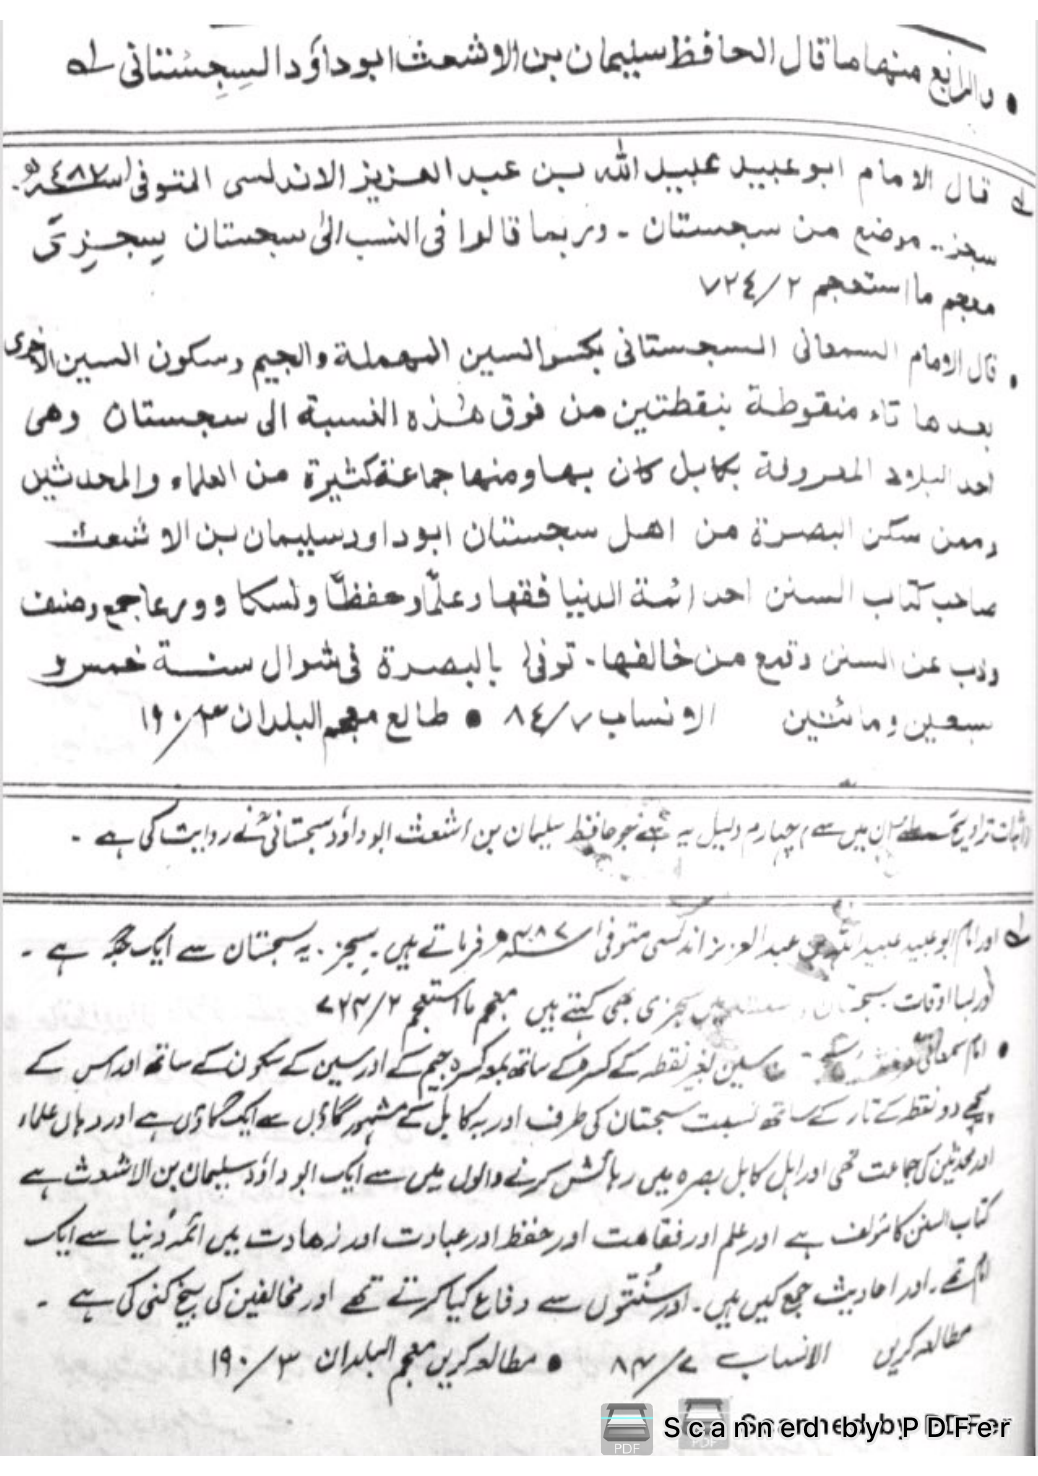 • والرابع منها ما قال الحافظ سليمان بن الاشعث ابوداؤد السِجِسْتانى لے
لے قال الامام ابو عبيد عبيد الله بن عبد العزيز الاندلسى المتوفى ٤٨٧
سجز .. موضع من سجستان ـ وربما قالوا فى النسب الىٰ سجستان سِجزِىٌّ
معجم ما استعجم ٧٢٤/٢
• قال الامام السمعانى السجستانى بكسر السين المهملة والجيم وسكون السين الاخرى
بعدها تاء منقوطة بنقطتين من فوق هٰذه النسبة الى سجستان وهى
احد البلاد المعروفة بكابل كان بها ومنها جماعة كثيرة من العلماء والمحدثين
وممن سكن البصرة من اهل سجستان ابوداود سليمان بن الاشعث
صاحب كتاب السنن احد ائمة الدنيا فقها وعلمًا وحفظًا ونسكا وورعا جمع وصنف
وذب عن السنن وقمع من خالفها ـ توفى بالبصرة فى شوال سنة خمس و
سبعين ومائتين الانساب ٨٤/٧ • طالع معجم البلدان ١٩٠/٣
میں سے چہارم دلیل یہ ہے جو حافظ سلیمان بن اشعث ابوداؤد سجستانی نے روایت کی ہے ۔
لے اور امام ابو عبید عبید اللہ بن عبد العزیز اندلسی متوفی ۴۸۷ھ فرماتے ہیں ۔ سجز ۔ یہ سجستان سے ایک جگہ ہے ۔
اور بسا اوقات سجستان میں سجزی بھی کہتے ہیں معجم ما استعجم ۷۲۴/۲
• امام سمعانی سین بغیر نقطہ کے کسرہ کے ساتھ بمعہ کسرہ جیم کے اور سین کے سکون کے ساتھ اور اس کے
پیچھے دو نقطہ کے تار کے ساتھ نسبت سجستان کی طرف اور یہ کابل کے مشہور گاؤں سے ایک گاؤں ہے اور وہاں علماء
اور محدثین کی جماعت تھی اور اہل کابل بصرہ میں رہائش کرنے والوں میں سے ایک ابوداؤد سلیمان بن الاشعث ہے
کتاب السنن کا مؤلف ہے اور علم اور فقاہت اور حفظ اور عبادت اور زھادت میں ائمہ دُنیا سے ایک
امام تھے ۔ اور احادیث جمع کیں ہیں ۔ اور سُنتوں سے دفاع کیا کرتے تھے اور مخالفین کی بیخ کنی کی ہے ۔
مطالعہ کریں الانساب ۸۴/۷ • مطالعہ کریں معجم البلدان ۱۹۰/۳
Scanned by PDFer